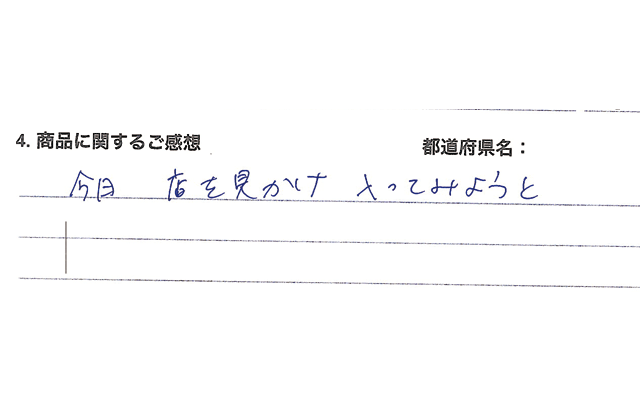 4. 商品に関するご感想
都道府県名：
今日 店を見かけ 入ってみようと